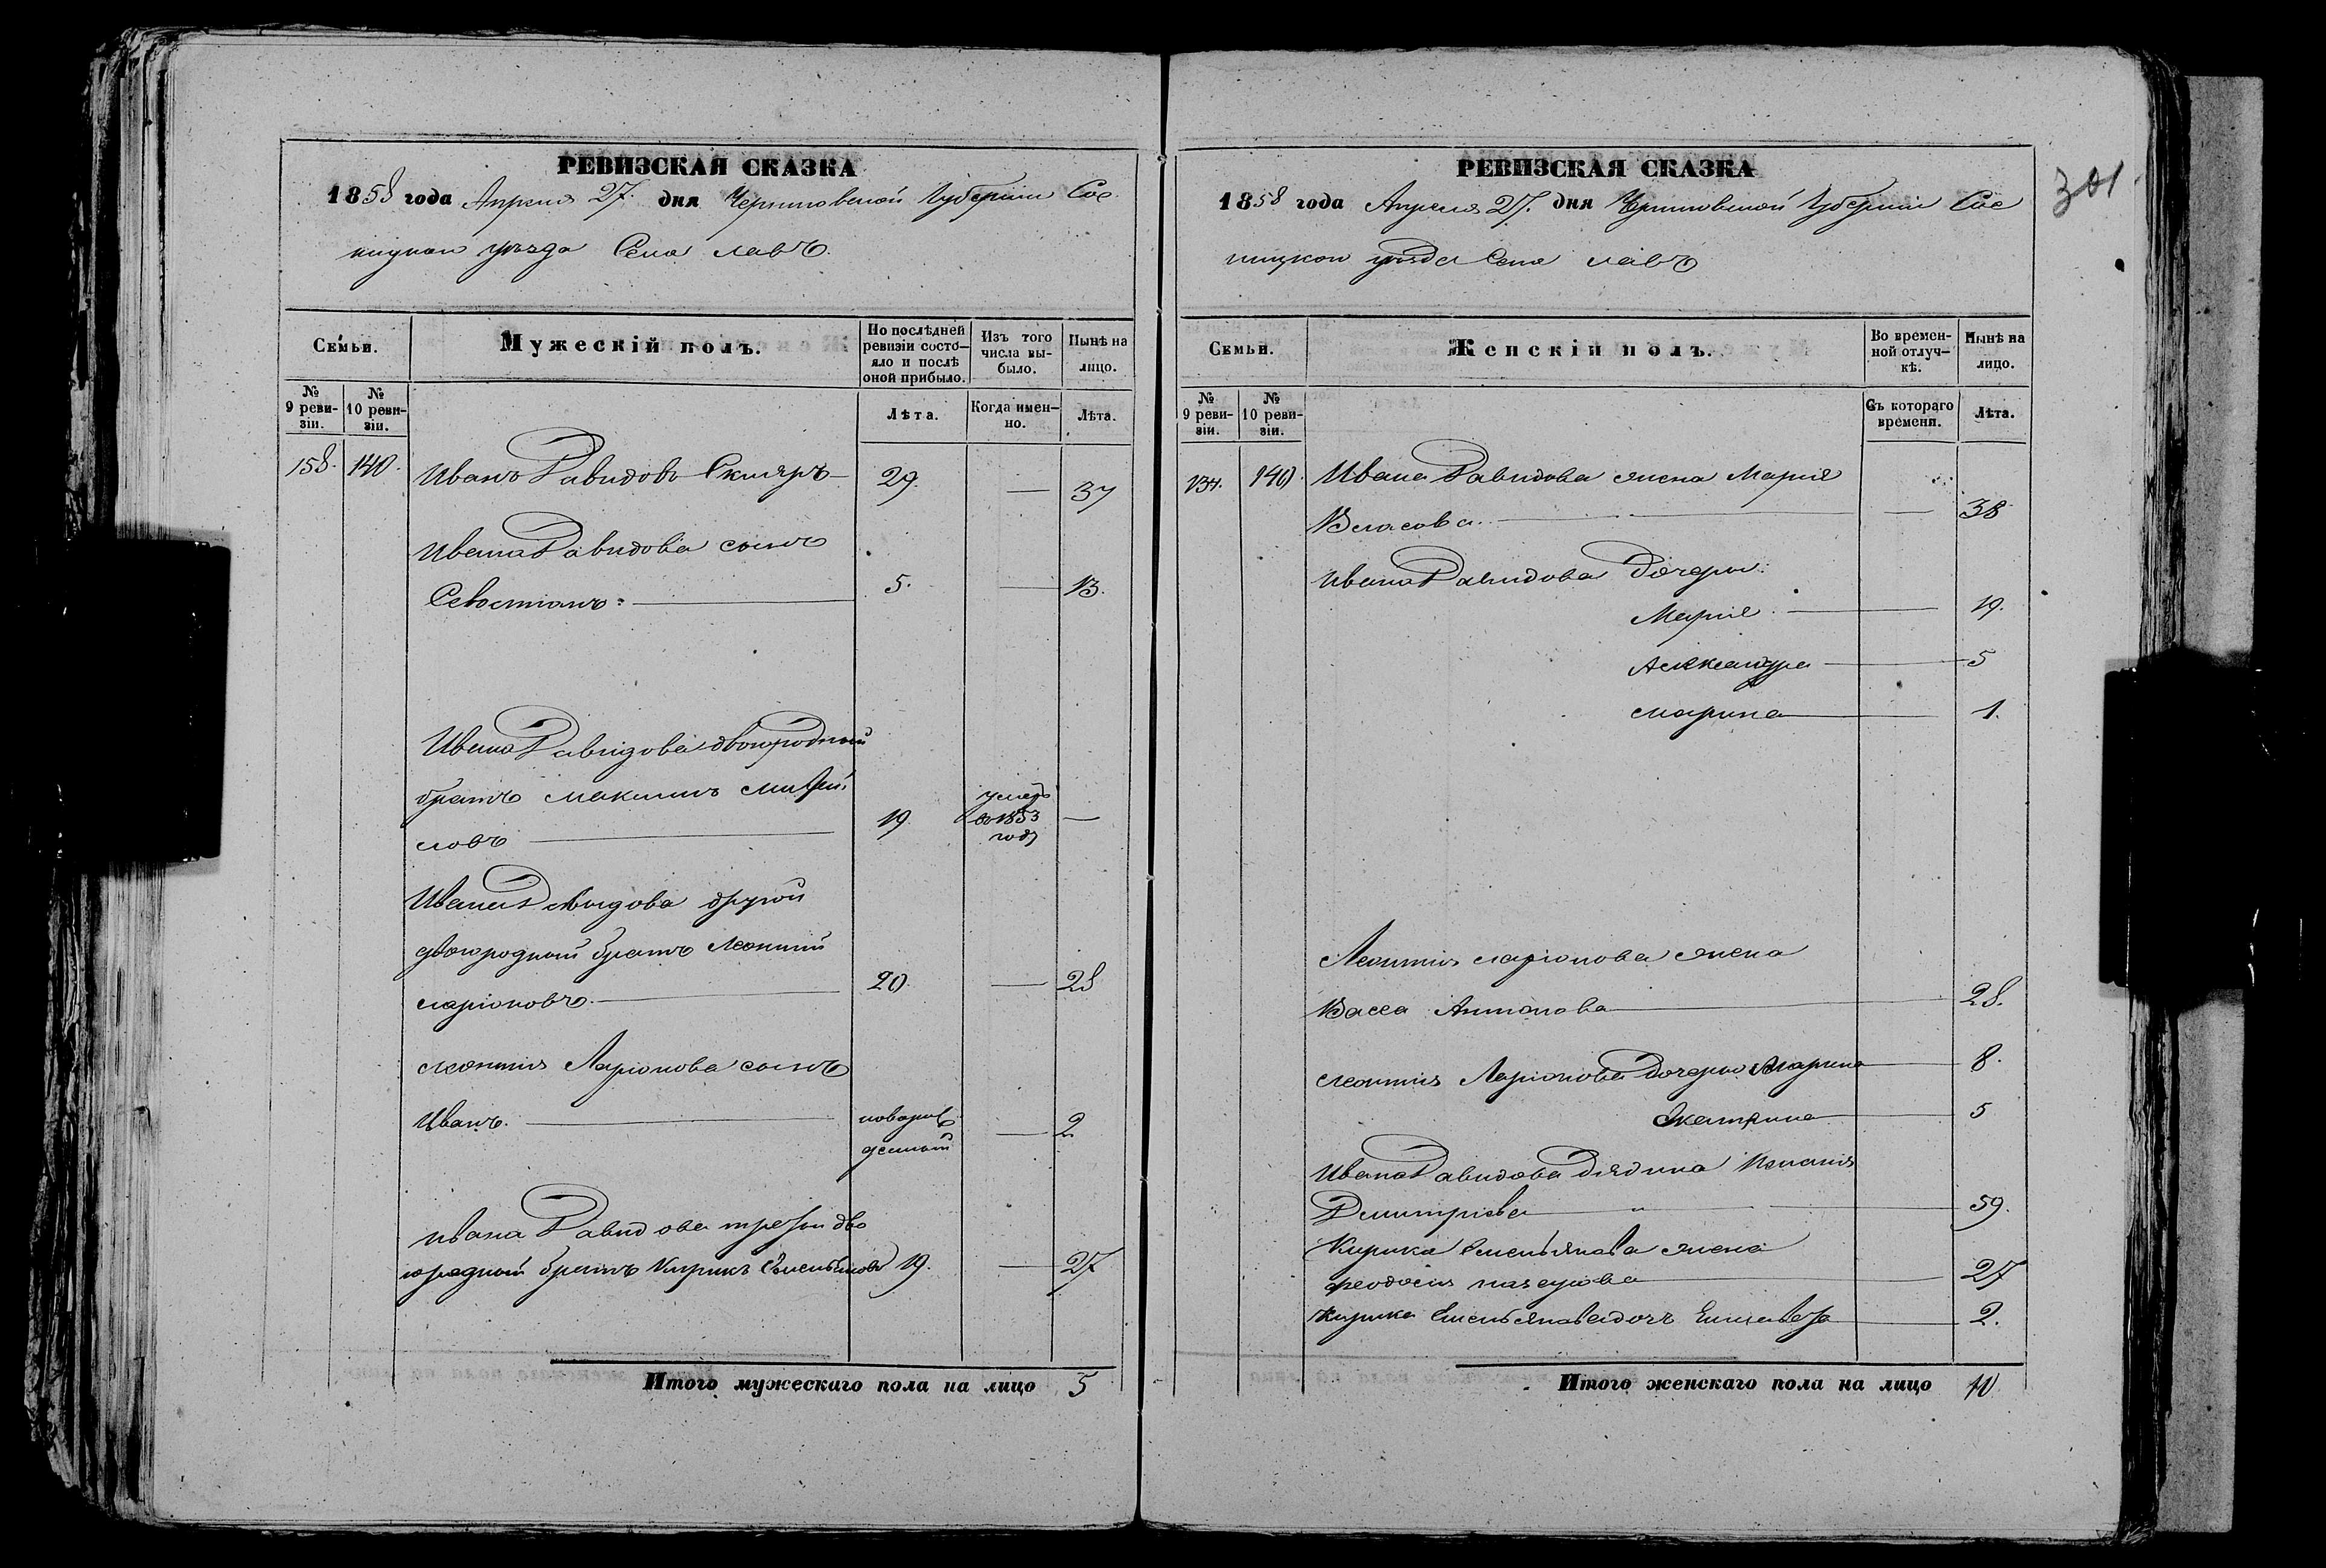 РЕВИЗСКАЯ СКАЗКА
1858 года Апреля 27. дня Черниговской Губернии Сос
ницкой уезда Села лавъ.
Семьи.
Мужескій полъ.
По послѣдней
ревизіи состо-
яло и послѣ
оной прибыло.
Изъ того
числа вы-
было.
Нынѣ на
лицо.
№
9 реви-
зіи.
№
10 реви-
зіи.
Лѣта.
Когда имен-
но.
Лѣта.
158. 140. Иванъ Давидовъ Скляръ 29. — 37
Ивана Давидова сынъ
Севостианъ: 5. — 13.
Ивана Давидова двоюродный
братъ максимъ
умеръ
въ 1853
году
19. —
Ивана Давидова другой
двоюродный братъ Леонтий
ларіоновъ. 20. — 28
леонтия Ларіонова сынъ
Иванъ. — 2
Ивана Давидова третий дво
юродный братъ Кирикъ Емельяновъ 19. — 27
Итого мужескаго пола на лицо 5
РЕВИЗСКАЯ СКАЗКА
1858 года Апреля 27. дня Черниговской Губернии Сос
ницкой уезда Села лавъ
301
Семьи.
Женскій полъ.
Во времен-
ной отлуч-
кѣ.
Нынѣ на
лицо.
№
9 реви-
зіи.
№
10 реви-
зіи.
Съ котораго
времени.
Лѣта.
140. Ивана Давидова жена Мария
Власова. — 38
Ивана Давидова дочери:
Мария. 19.
Александра 5
марина 1.
Леонтия ларіонова жена
Васса Антонова 28.
леонтия Ларіонова дочери Марина 8.
Екатрина 5
Ивана Давидова дядина
Димитріева 59.
Кирика Емельянова жена
феодосия 27
Кирика Емельянова дочь Елисавета 2.
Итого женскаго пола на лицо 10